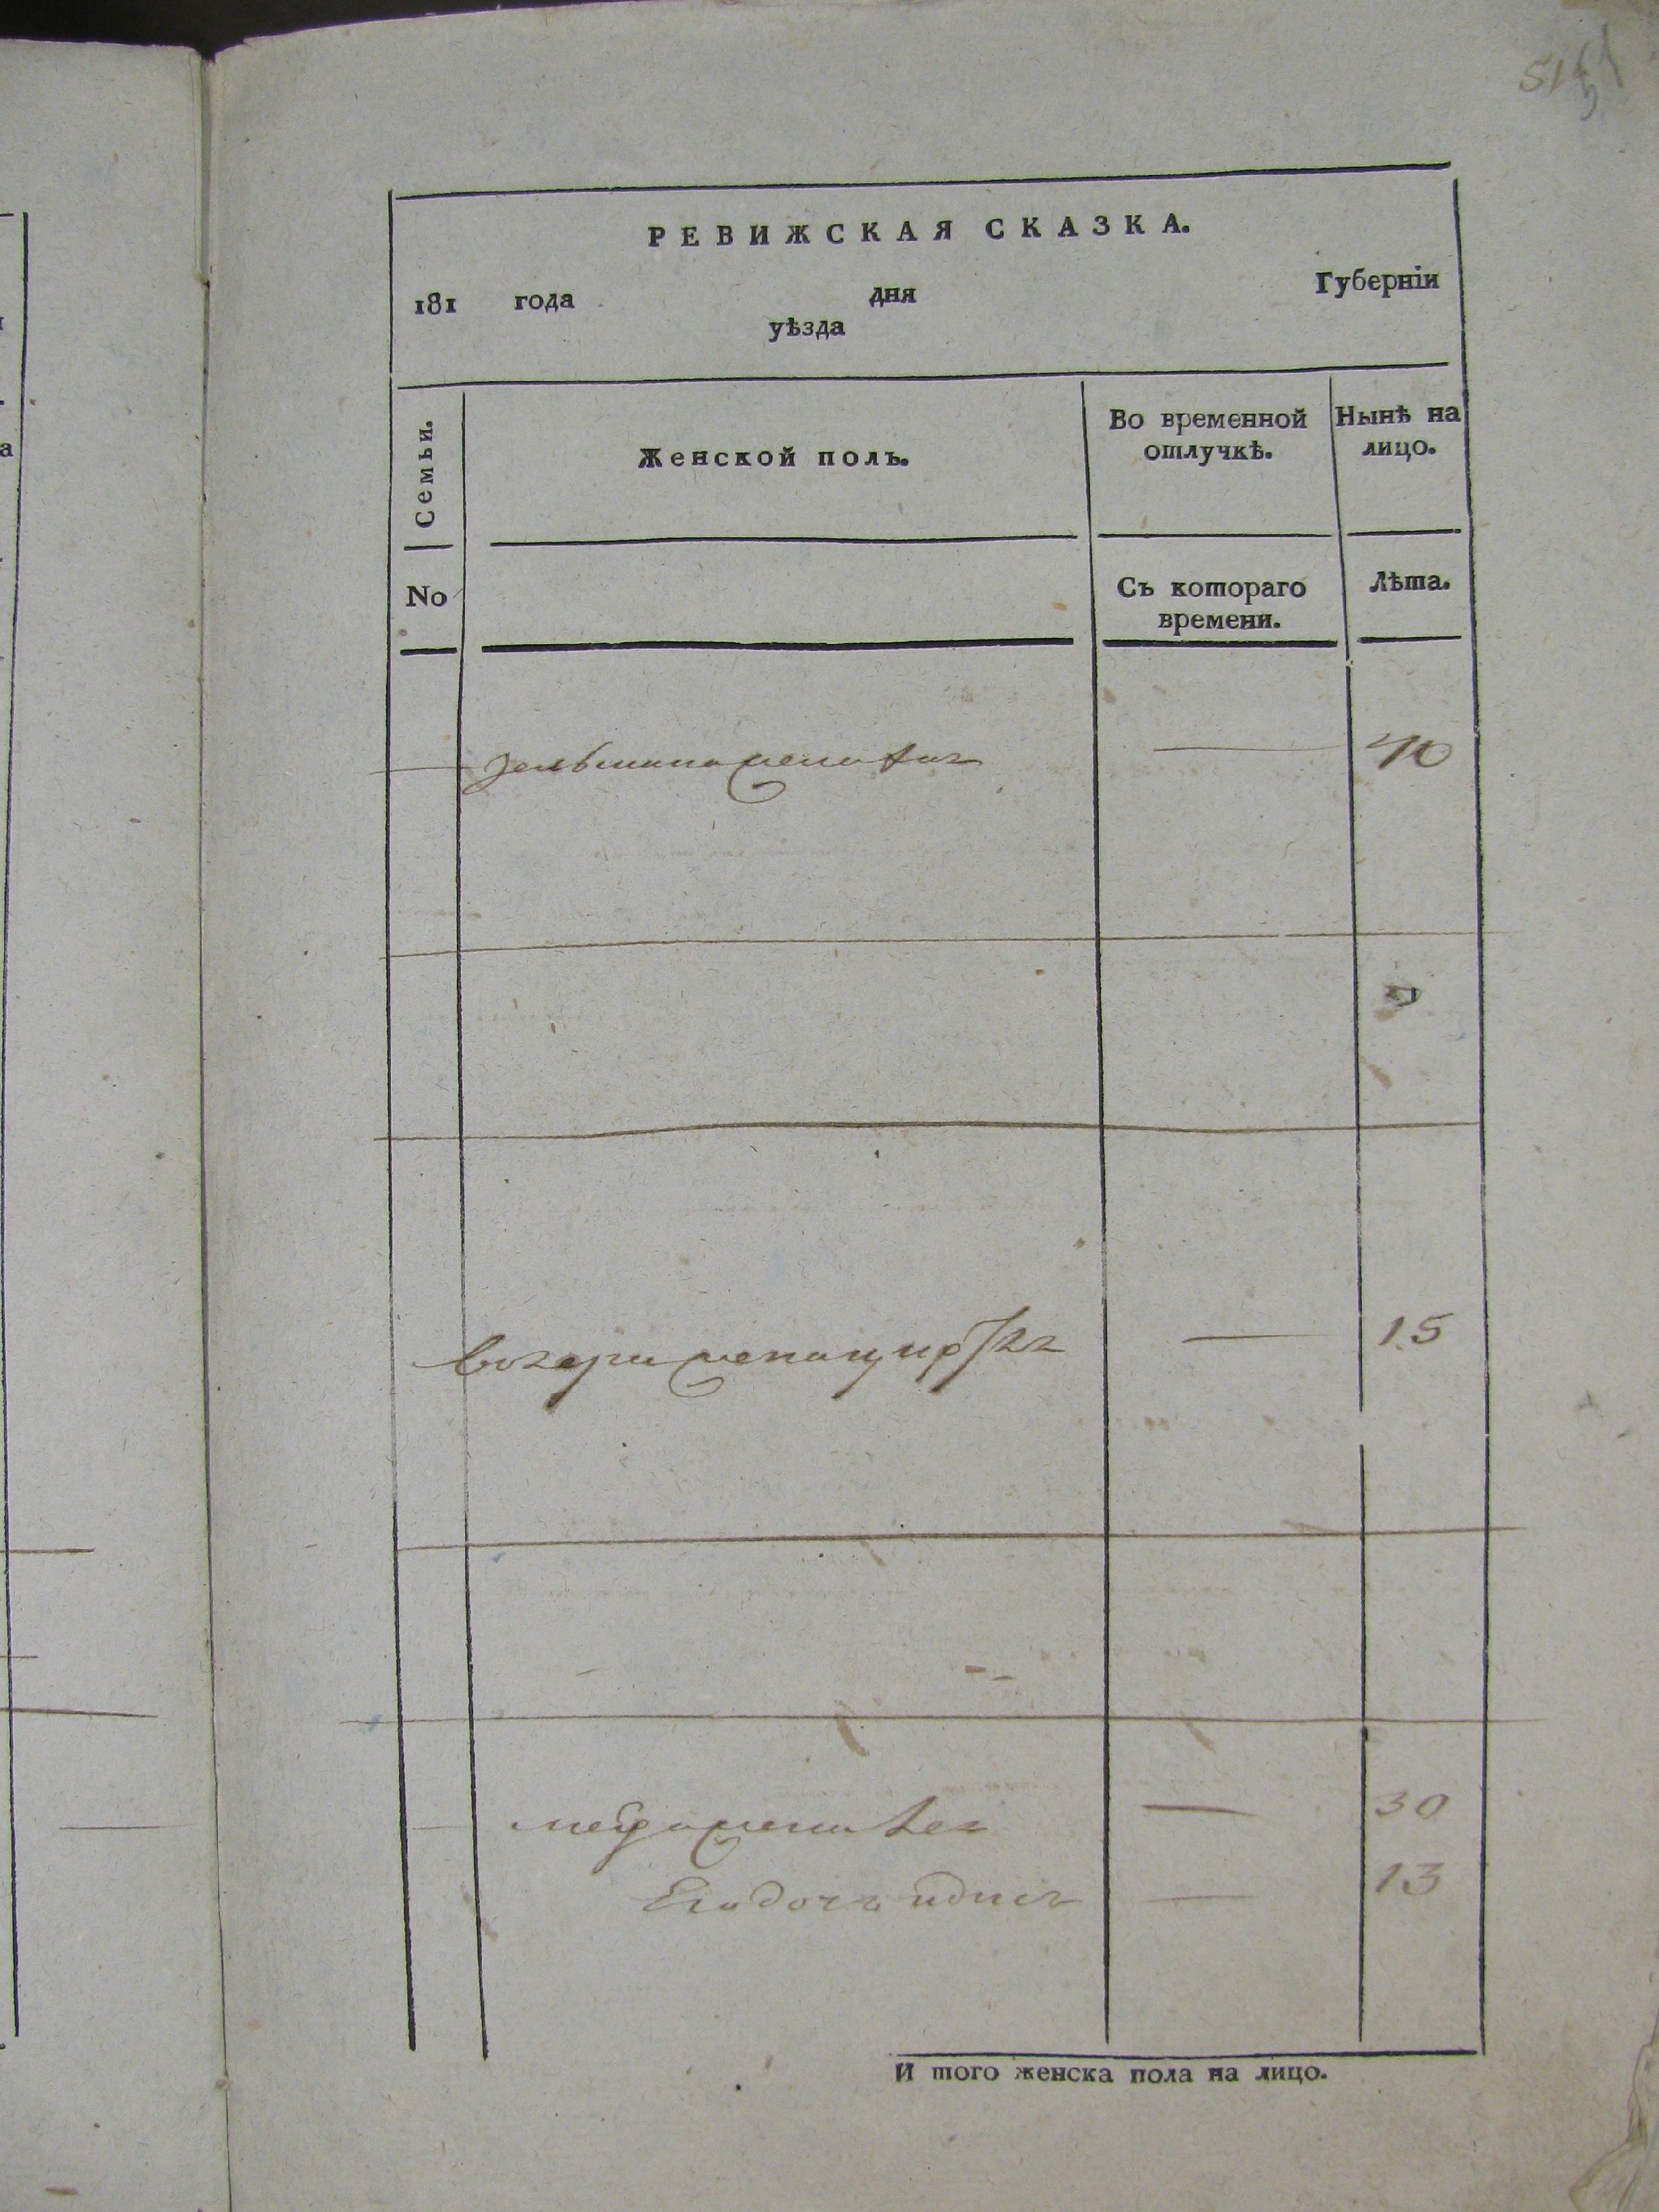 51
РЕВИЖСКАЯ СКАЗКА.
181 года дня Губерніи
уѣзда
Семьи.
Женской полъ.
Во временной отлучкѣ.
Нынѣ на лицо.
No
Съ котораго времени.
Лѣта.
жена 40
жена 15
жена 30
Его дочь 13
И того женска пола на лицо.